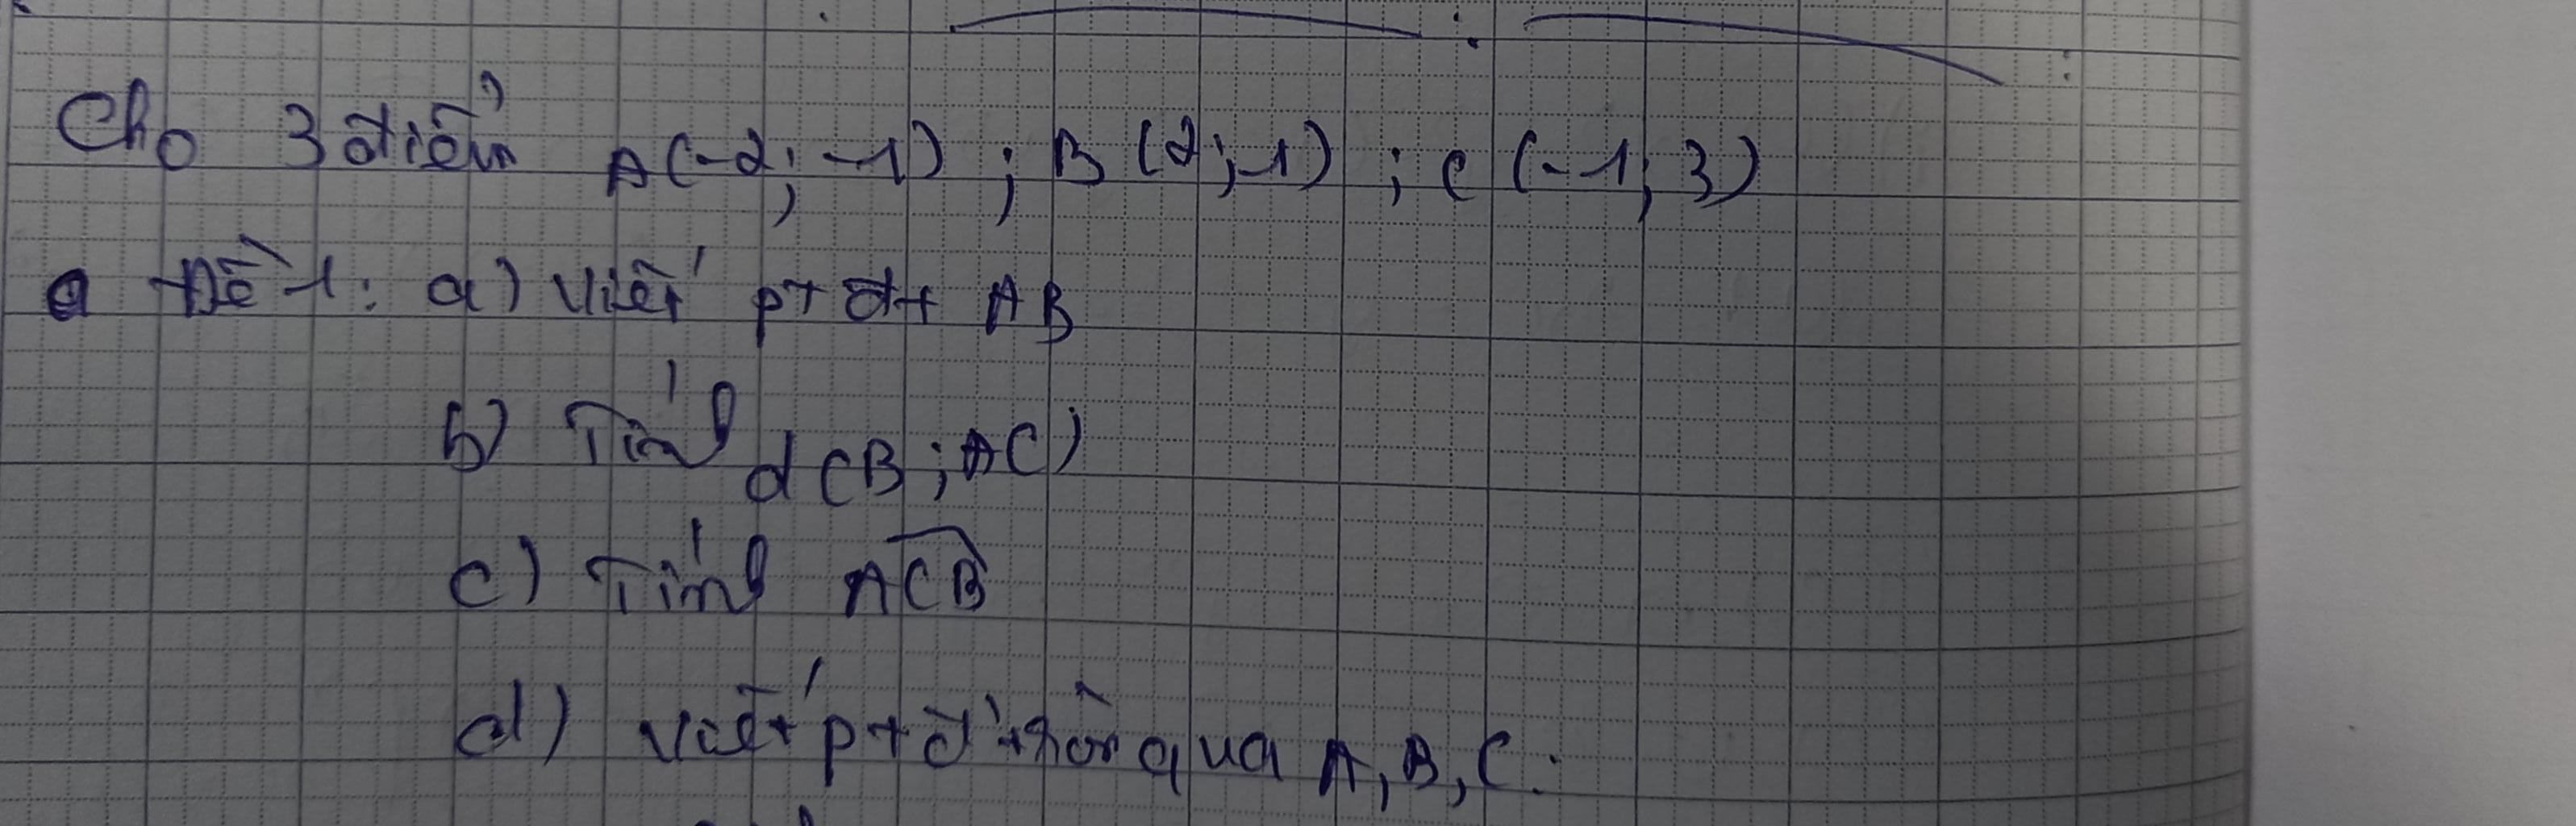 Cho 3 điểm A(-2; -1) ; B (2; -1) ; C (-1; 3)
Đề 1: a) Viết pt đt AB
b) Tính d(B; AC)
c) Tính ACB
d) Viết pt đ' tròn qua A, B, C.